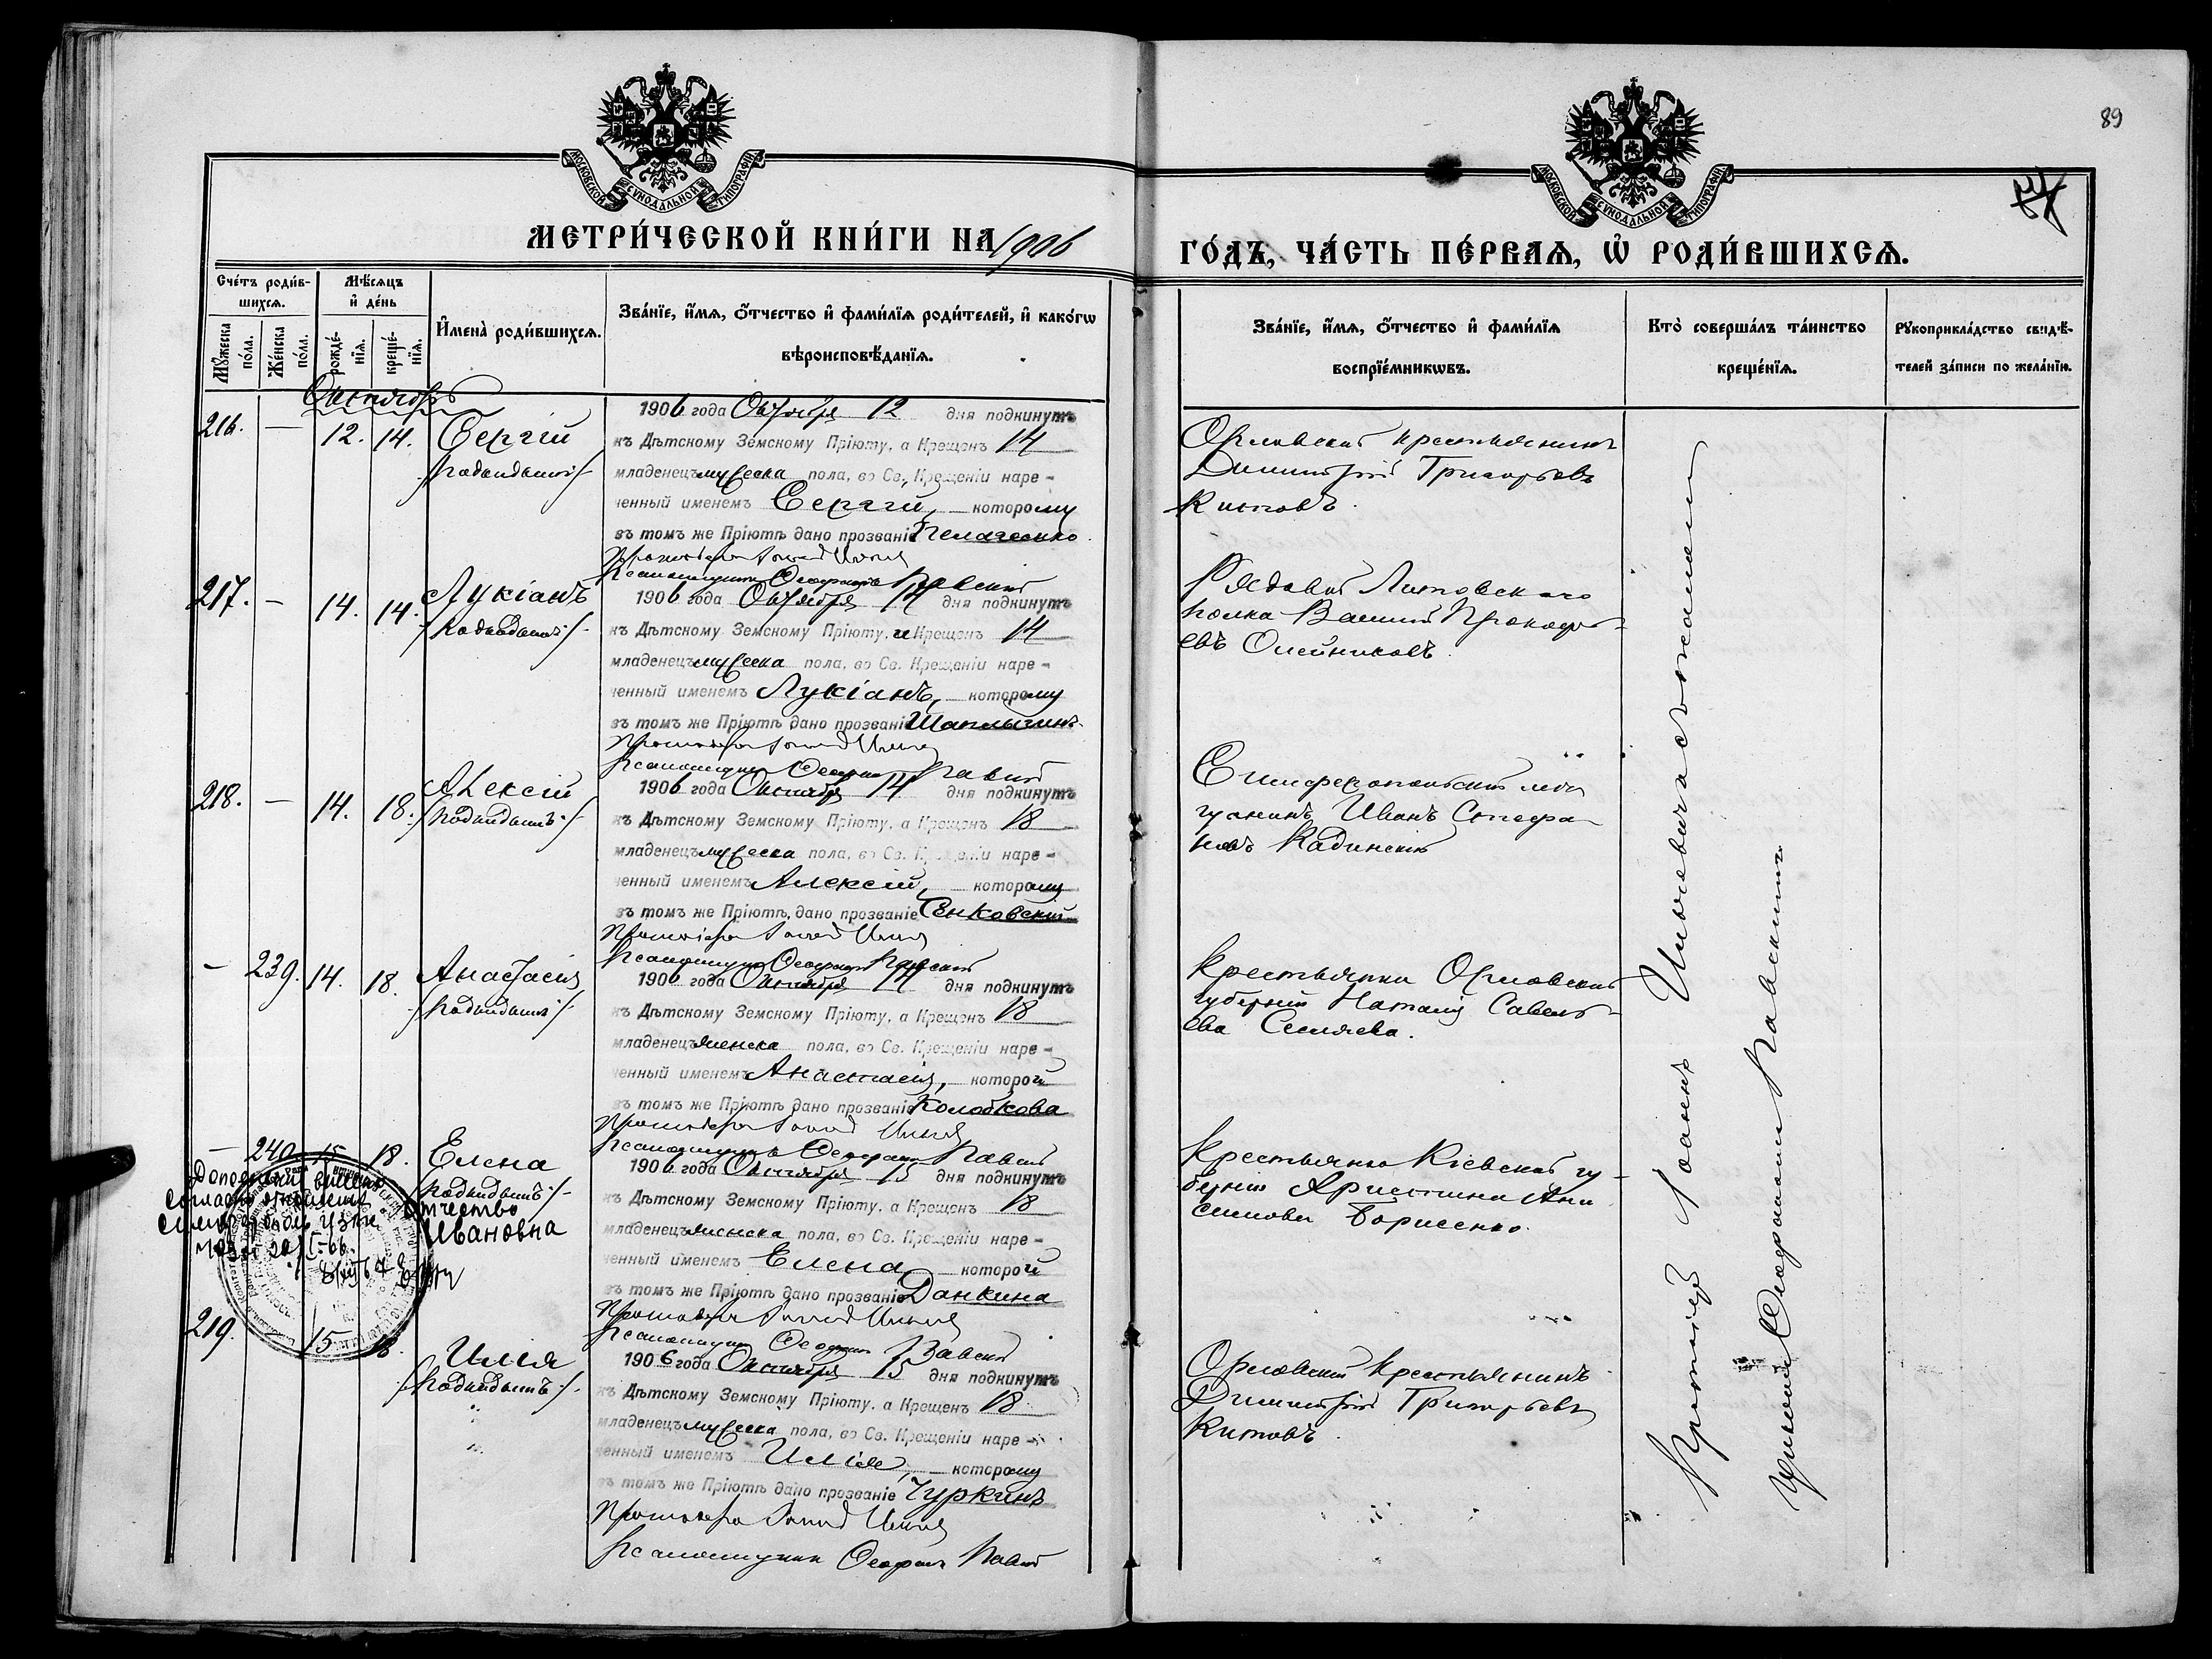 89
МОСКОВСКОЙ СѴНОДАЛЬНОЙ ТИПОГРАФІИ
МОСКОВСКОЙ СѴНОДАЛЬНОЙ ТИПОГРАФІИ
МЕТРИ́ЧЕСКОЙ КНИ́ГИ НА 1906
ГО́ДЪ, ЧА́СТЬ ПЕ́РВАЯ, Ѡ҆ РОДИ́ВШИХСЯ.
Сче́тъ роди́в-
шихся.
Мѣ́сяцъ
и҆ де́нь
Мꙋ́жеска по́ла.
Же́нска по́ла.
рожде́-нїя.
креще́-нїя.
И҆мена̀ роди́вшихся.
Зва́нїе, и҆́мя, ѻ҆́тчество и҆ фами́лїя роди́телей, и҆ како́гѡ
вѣроисповѣ́данїя.
Зва́нїе, и҆́мя, ѻ҆́тчество и҆ фами́лїя
воспрїе́мникѡвъ.
Кто̀ соверша́лъ та́инство
креще́нїя.
Рꙋкоприкла́дство свидѣ́-
телей за́писи по жела́нїю.
Октябрь
216. — 12. 14. Сергій
/Подкидышъ/
1906 года Октября 12 дня подкинутъ
къ Дѣтскому Земскому Пріюту, а Крещенъ 14
младенецъ мужеска пола, во Св. Крещеніи наре-
ченный именемъ Сергій, которому
въ томъ же Пріютѣ дано прозваніе
Протоіерей
Псаломщикъ Феофанъ Павскій
Орловскій крестьянинъ
Димитрій Григорьевъ
Китовъ.
217. — 14. 14. Лукіанъ
/Подкидышъ/
1906 года Октября 14 дня подкинутъ
къ Дѣтскому Земскому Пріюту, и Крещенъ 14
младенецъ мужеска пола, во Св. Крещеніи наре-
ченный именемъ Лукіанъ, которому
въ томъ же Пріютѣ дано прозваніе Шаплыгинъ.
Протоіерей
Псаломщикъ Феофанъ Павскій
Рядовой Литовскаго
полка Прокофь-
евъ Олейниковъ.
218. — 14. 18. Алексій
/Подкидышъ/
1906 года Октября 14 дня подкинутъ
къ Дѣтскому Земскому Пріюту, а Крещенъ 18
младенецъ мужеска пола, во Св. Крещеніи наре-
ченный именемъ Алексій, которому
въ томъ же Пріютѣ, дано прозваніе Сенковскій
Протоіерей
Псаломщикъ Феофанъ Павскій
Симферопольскій мѣщ
Иванъ Стефа-
новъ Кадинскій
— 239. 14. 18. Анастасія
/Подкидышъ/
1906 года Октября 14 дня подкинутъ
къ Дѣтскому Земскому Пріюту, а Крещенъ 18
младенецъ женска пола, во Св. Крещеніи наре-
ченный именемъ Анастасія, которой
въ томъ же Пріютѣ дано прозваніе Колобкова
Протоіерей
Псаломщикъ Феофанъ Павскій
Крестьянка Орловской
губерніи Наталія Савель-
ева
— 240. 15 18. Елена
/Подкидышъ/
отчество
Ивановна
1906 года Октября 15 дня подкинутъ
къ Дѣтскому Земскому Пріюту, а Крещенъ 18
младенецъ женска пола, во Св. Крещеніи наре-
ченный именемъ Елена, которой
въ томъ же Пріютѣ дано прозваніе Данкина
Протоіерей
Псаломщикъ Феофанъ Павскій
Крестьянка Кіевской гу-
берніи Христина Ани
симова Борисенко.
219. 15 18. Илія
/Подкидышъ/
1906 года Октября 15 дня подкинутъ
къ Дѣтскому Земскому Пріюту, а Крещенъ 18
младенецъ мужеска пола, во Св. Крещеніи наре-
ченный именемъ Илія, которому
въ томъ же Пріютѣ дано прозваніе Чуркинъ
Протоіерей
Псаломщикъ Феофанъ Павскій
Орловскій Крестьянинъ
Димитрій Григорьевъ
Китовъ.
Протоіерей Іоаннъ съ псалом
щикомъ Феофаномъ Павскимъ